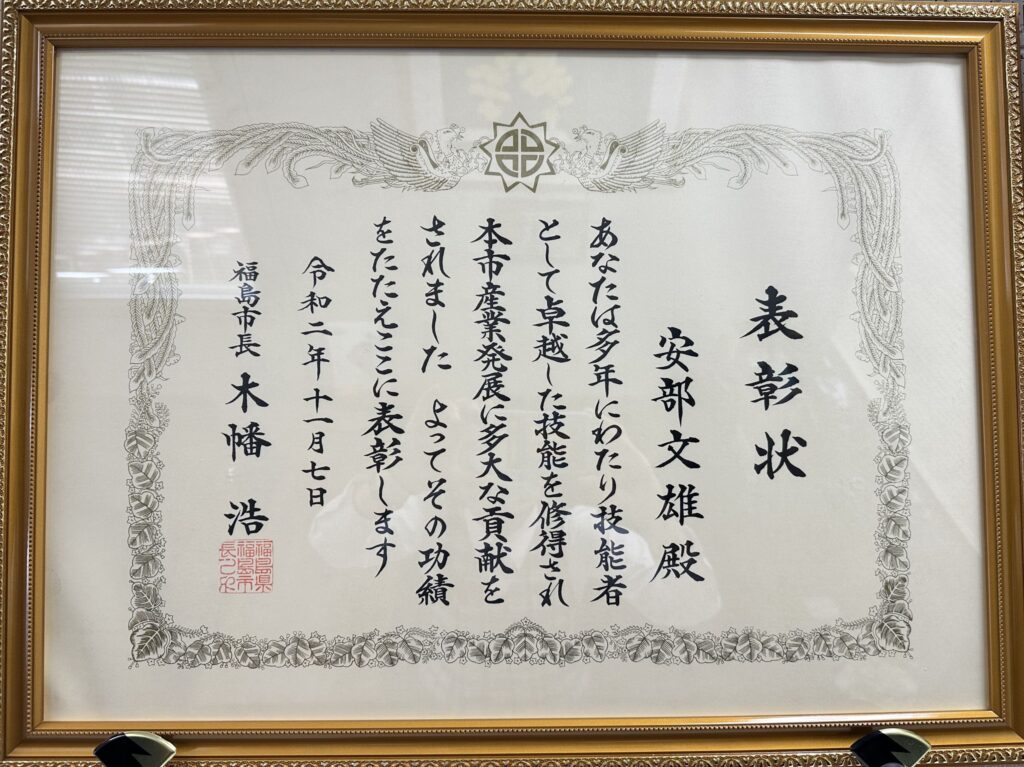 表彰状
安部文雄殿
あなたは多年にわたり技能者
として卓越した技能を修得され
本市産業発展に多大な貢献を
されました よってその功績
をたたえここに表彰します
令和二年十一月七日
福島市長 木幡 浩
福島県
福島市
長之印